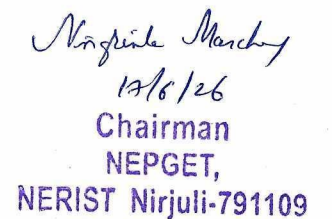 17/6/26
Chairman
NEPGET,
NERIST Nirjuli-791109